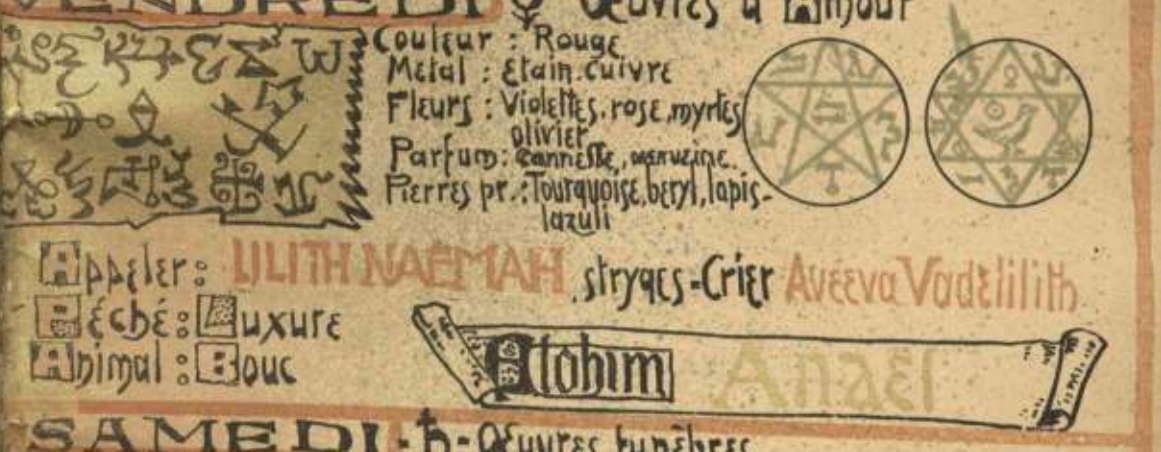 VENDREDI ♀ Œuvres d'Amour
Couleur : Rouge
Métal : Etain.cuivre
Fleurs : Violettes, rose, myrtes,
olivier
Parfum : cannelle, verveine.
Pierres pr.: Tourquoise, beryl, lapis-
lazuli
Appeler : LILITH NAEMAH, stryges - Crier Aveeva Vadelilith
Péché : Luxure
Animal : Bouc
Elohim Anaël
SAMEDI - ♄ - Œuvres funèbres